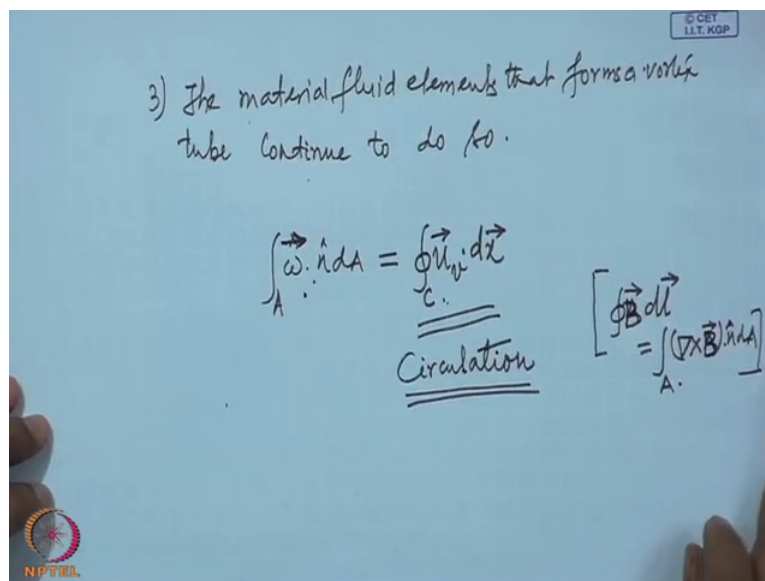 © CET
I.I.T. KGP
3) The material fluid elements that forms a vortix
tube continue to do so.
∫_A ω⃗ · n̂ dA = ∮_C u⃗_v · dx⃗
Circulation
[∮ B⃗ dl⃗
= ∫_A (∇×B⃗) · n̂ dA]
NPTEL